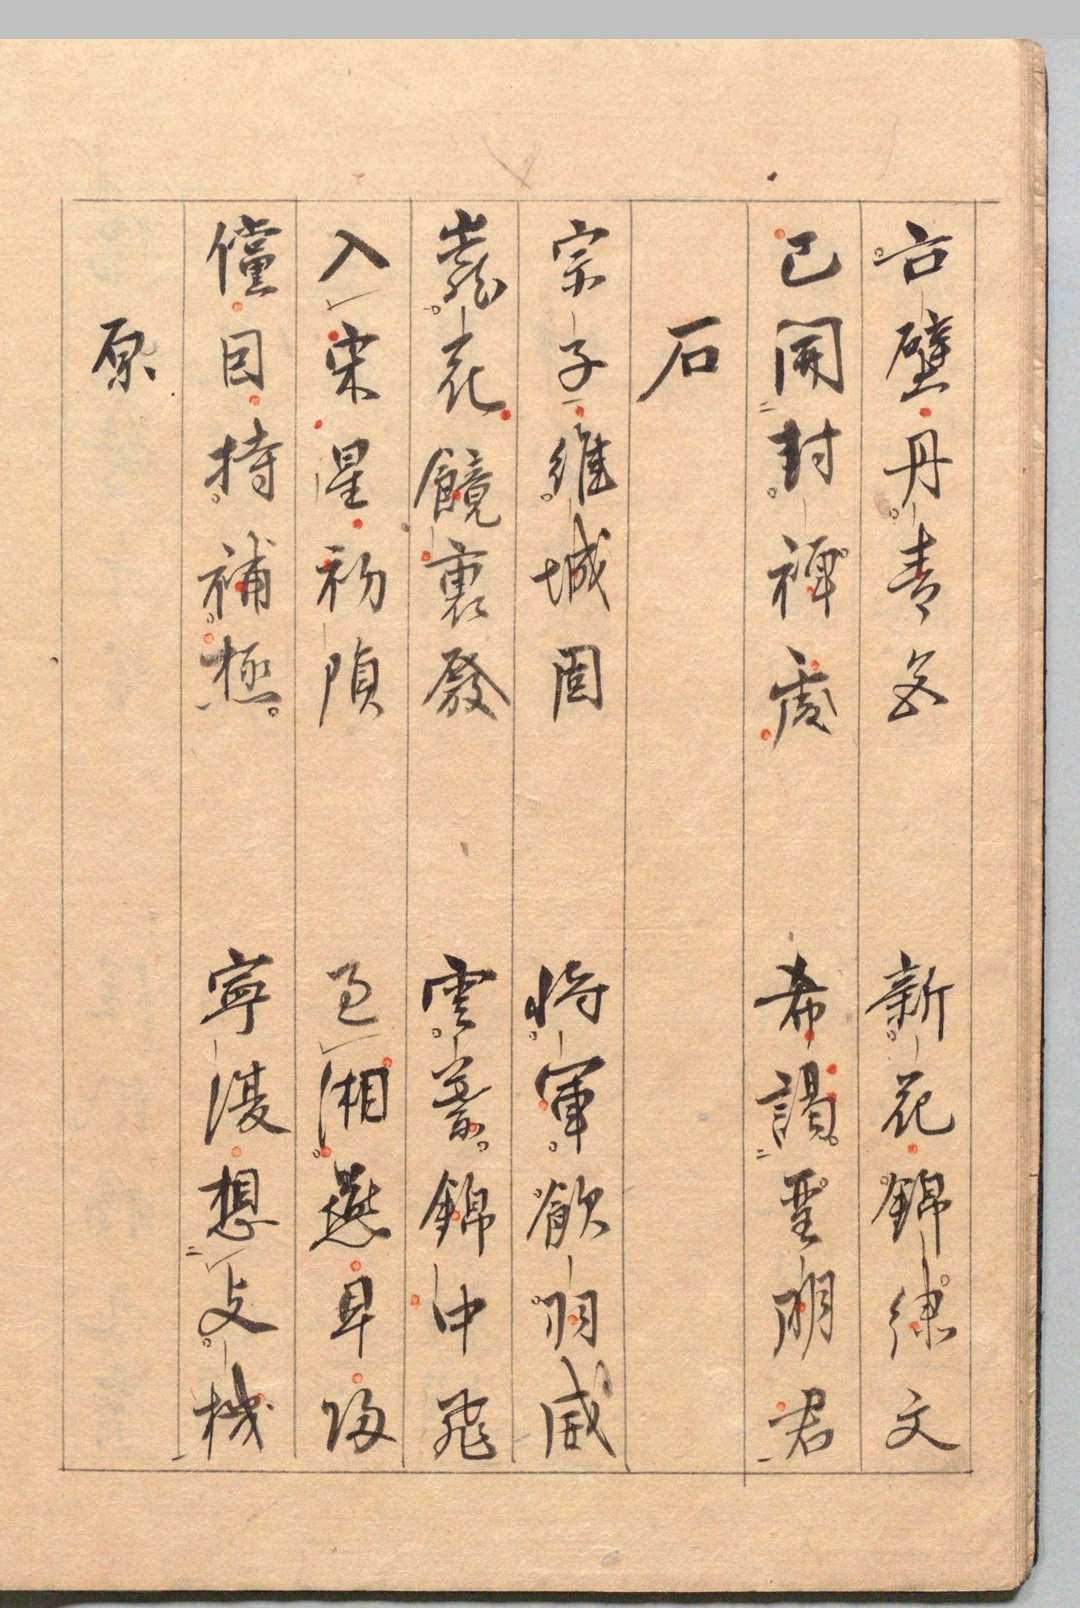 古壁丹青色　新花錦繡文
已開封禪處　希謁聖明君
石
宗子維城固　將軍飲羽威
巖花鏡裏發　雲葉錦中飛
入宋星初隕　過湘燕早歸
儻因持補極　寧復想支機
原